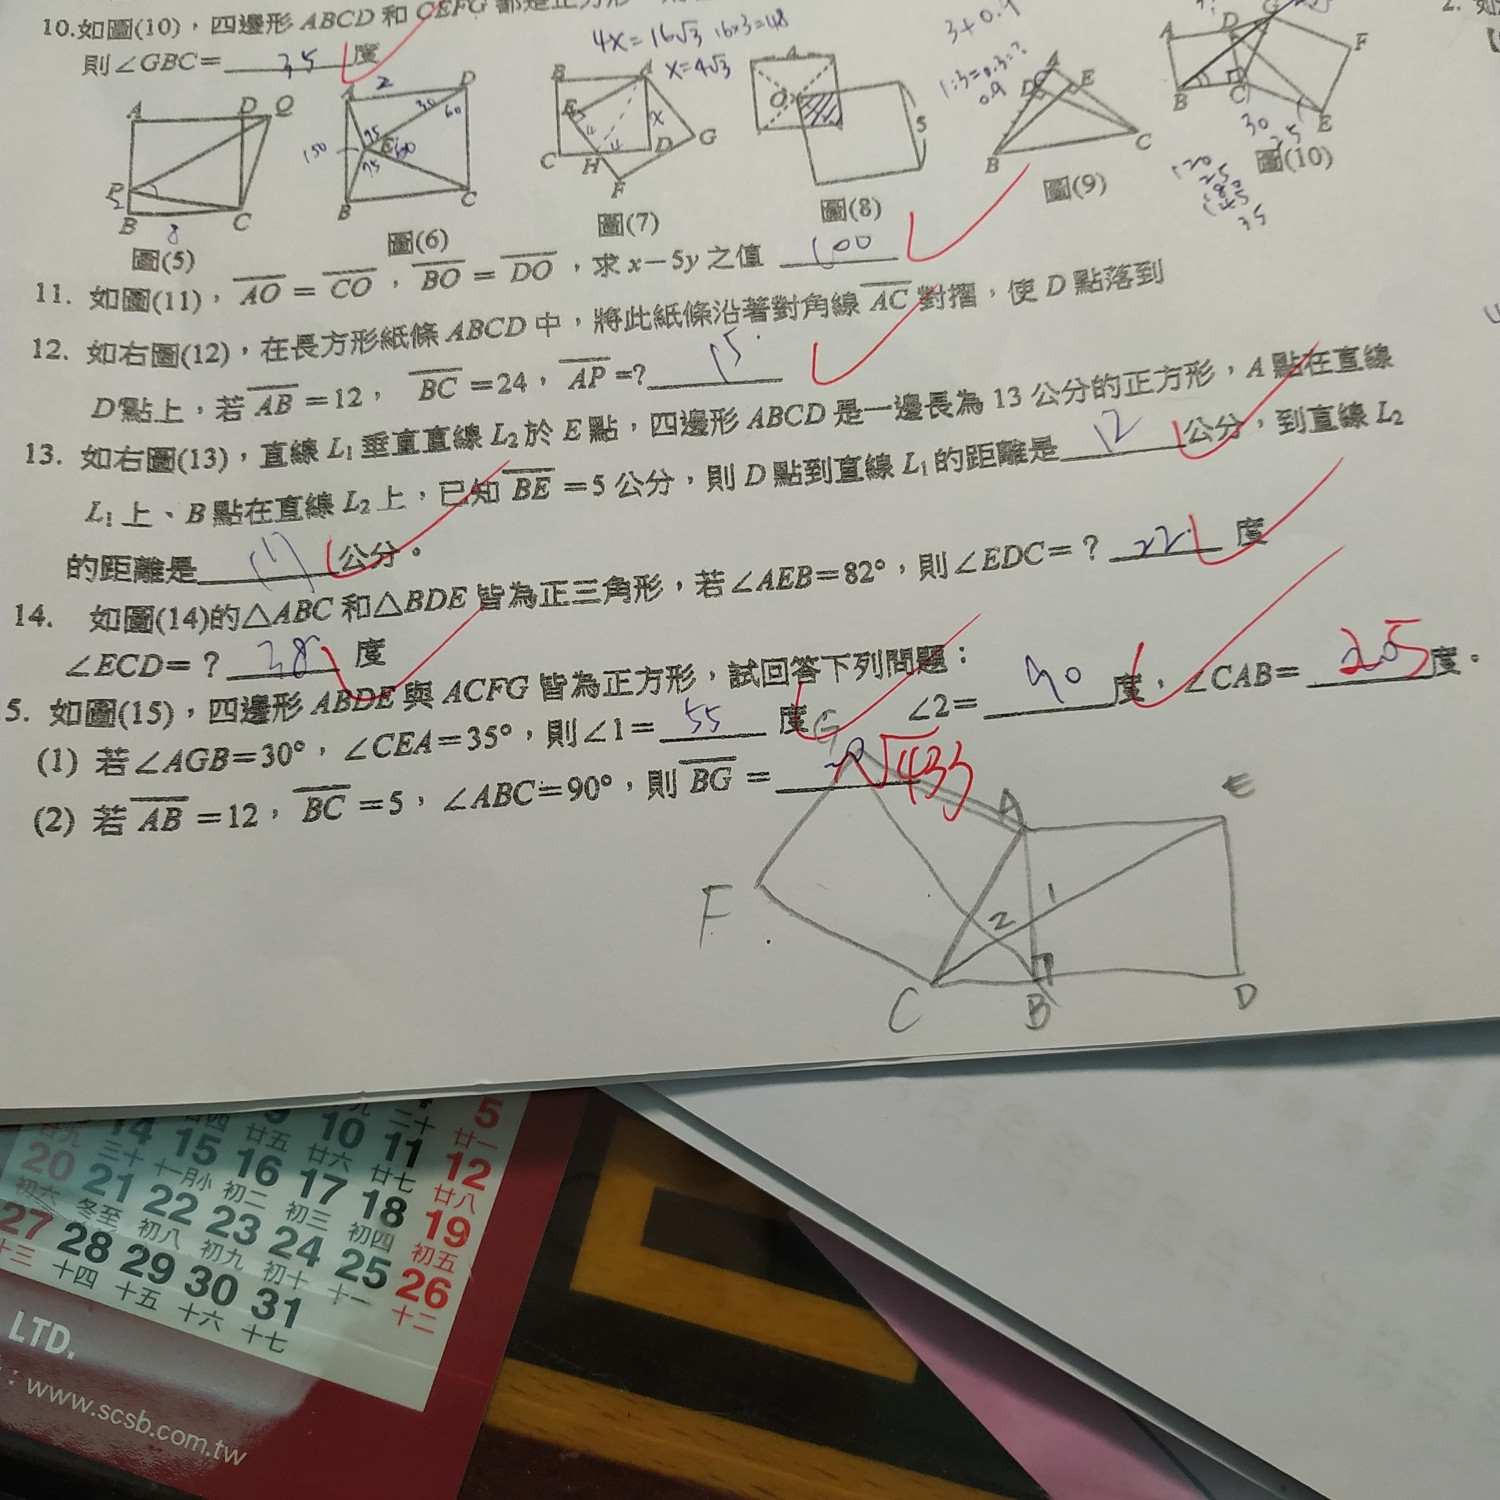 10.如圖(10)，四邊形ABCD和CEFG都是正方形
則∠GBC= 35 度
4x=16√3 16×3=48
x=4√3
3+0.9
1:3=0.3:?
0.9
A D Q P B C 2 8
圖(5)
A 2 D 30 60 75 E 60 150 75 B C
圖(6)
B A E x C H 4 D G F
圖(7)
A O 5
圖(8)
A D E B C
圖(9)
A D G F B C E
30
25
圖(10)
11. 如圖(11)，AO = CO，BO = DO，求x-5y之值 100
12. 如右圖(12)，在長方形紙條ABCD中，將此紙條沿著對角線AC對摺，使D點落到
D'點上，若AB=12，BC=24，AP=? 15
13. 如右圖(13)，直線L₁垂直直線L₂於E點，四邊形ABCD是一邊長為13公分的正方形，A點在直線
L₁上、B點在直線L₂上，已知BE=5公分，則D點到直線L₁的距離是 12 公分，到直線L₂
的距離是 17 公分。
14. 如圖(14)的△ABC和△BDE皆為正三角形，若∠AEB=82°，則∠EDC=？ 22 度
∠ECD=？ 38 度
5. 如圖(15)，四邊形ABDE與ACFG皆為正方形，試回答下列問題：
(1) 若∠AGB=30°，∠CEA=35°，則∠1= 55 度 ∠2= 90 度，∠CAB= 25 度。
(2) 若AB=12，BC=5，∠ABC=90°，則BG= √433
G A E
F 2 1
C B D
5
廿一
14 三十 15 十一月小 16 初二 17 初三 18 初四 19 初五
10 廿六 11 廿七 12 廿八
20 初六 21 冬至 22 初八 23 初九 24 初十 25 十一 26 十二
27 十三 28 十四 29 十五 30 十六 31 十七
LTD.
: www.scsb.com.tw